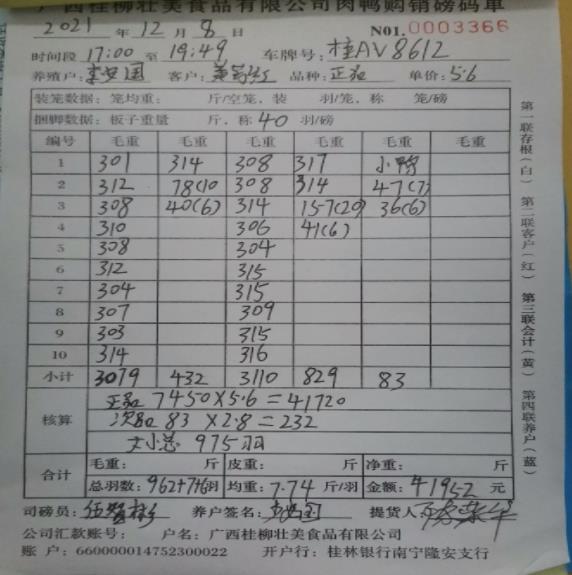 广西桂柳壮美食品有限公司肉鸭购销磅码单
2021 年 12 月 8 日 NO1. 0003366
时间段 17:00 至 19:49 车牌号: 桂AV8612
养殖户: 客户: 品种: 正品 单价: 5.6
装笼数据: 笼均重: 斤/空笼, 装 羽/笼, 称 笼/磅
捆脚数据: 板子重量 斤, 称 40 羽/磅
编号 毛重 毛重 毛重 毛重 毛重 毛重
1 301 314 308 317 小鸭
2 312 78(10 308 314 47(7)
3 308 40(6) 314 157(20) 36(6)
4 310 306 41(6)
5 308 304
6 312 315
7 304 315
8 307 309
9 303 315
10 314 316
小计 3079 432 3110 829 83
核算
正品 7450×5.6=41720
次品 83×2.8=232
大小总 975羽
合计 毛重: 斤 皮重: 斤 净重: 斤
总羽数: 962+7+6羽 均重: 7.74 斤/羽 金额: 41952 元
司磅员: 养户签名: 提货人
公司汇款账号: 户名: 广西桂柳壮美食品有限公司
账户: 660000014752300022 开户行: 桂林银行南宁隆安支行
第一联存根(白) 第二联客户(红) 第三联会计(黄) 第四联养户(蓝)